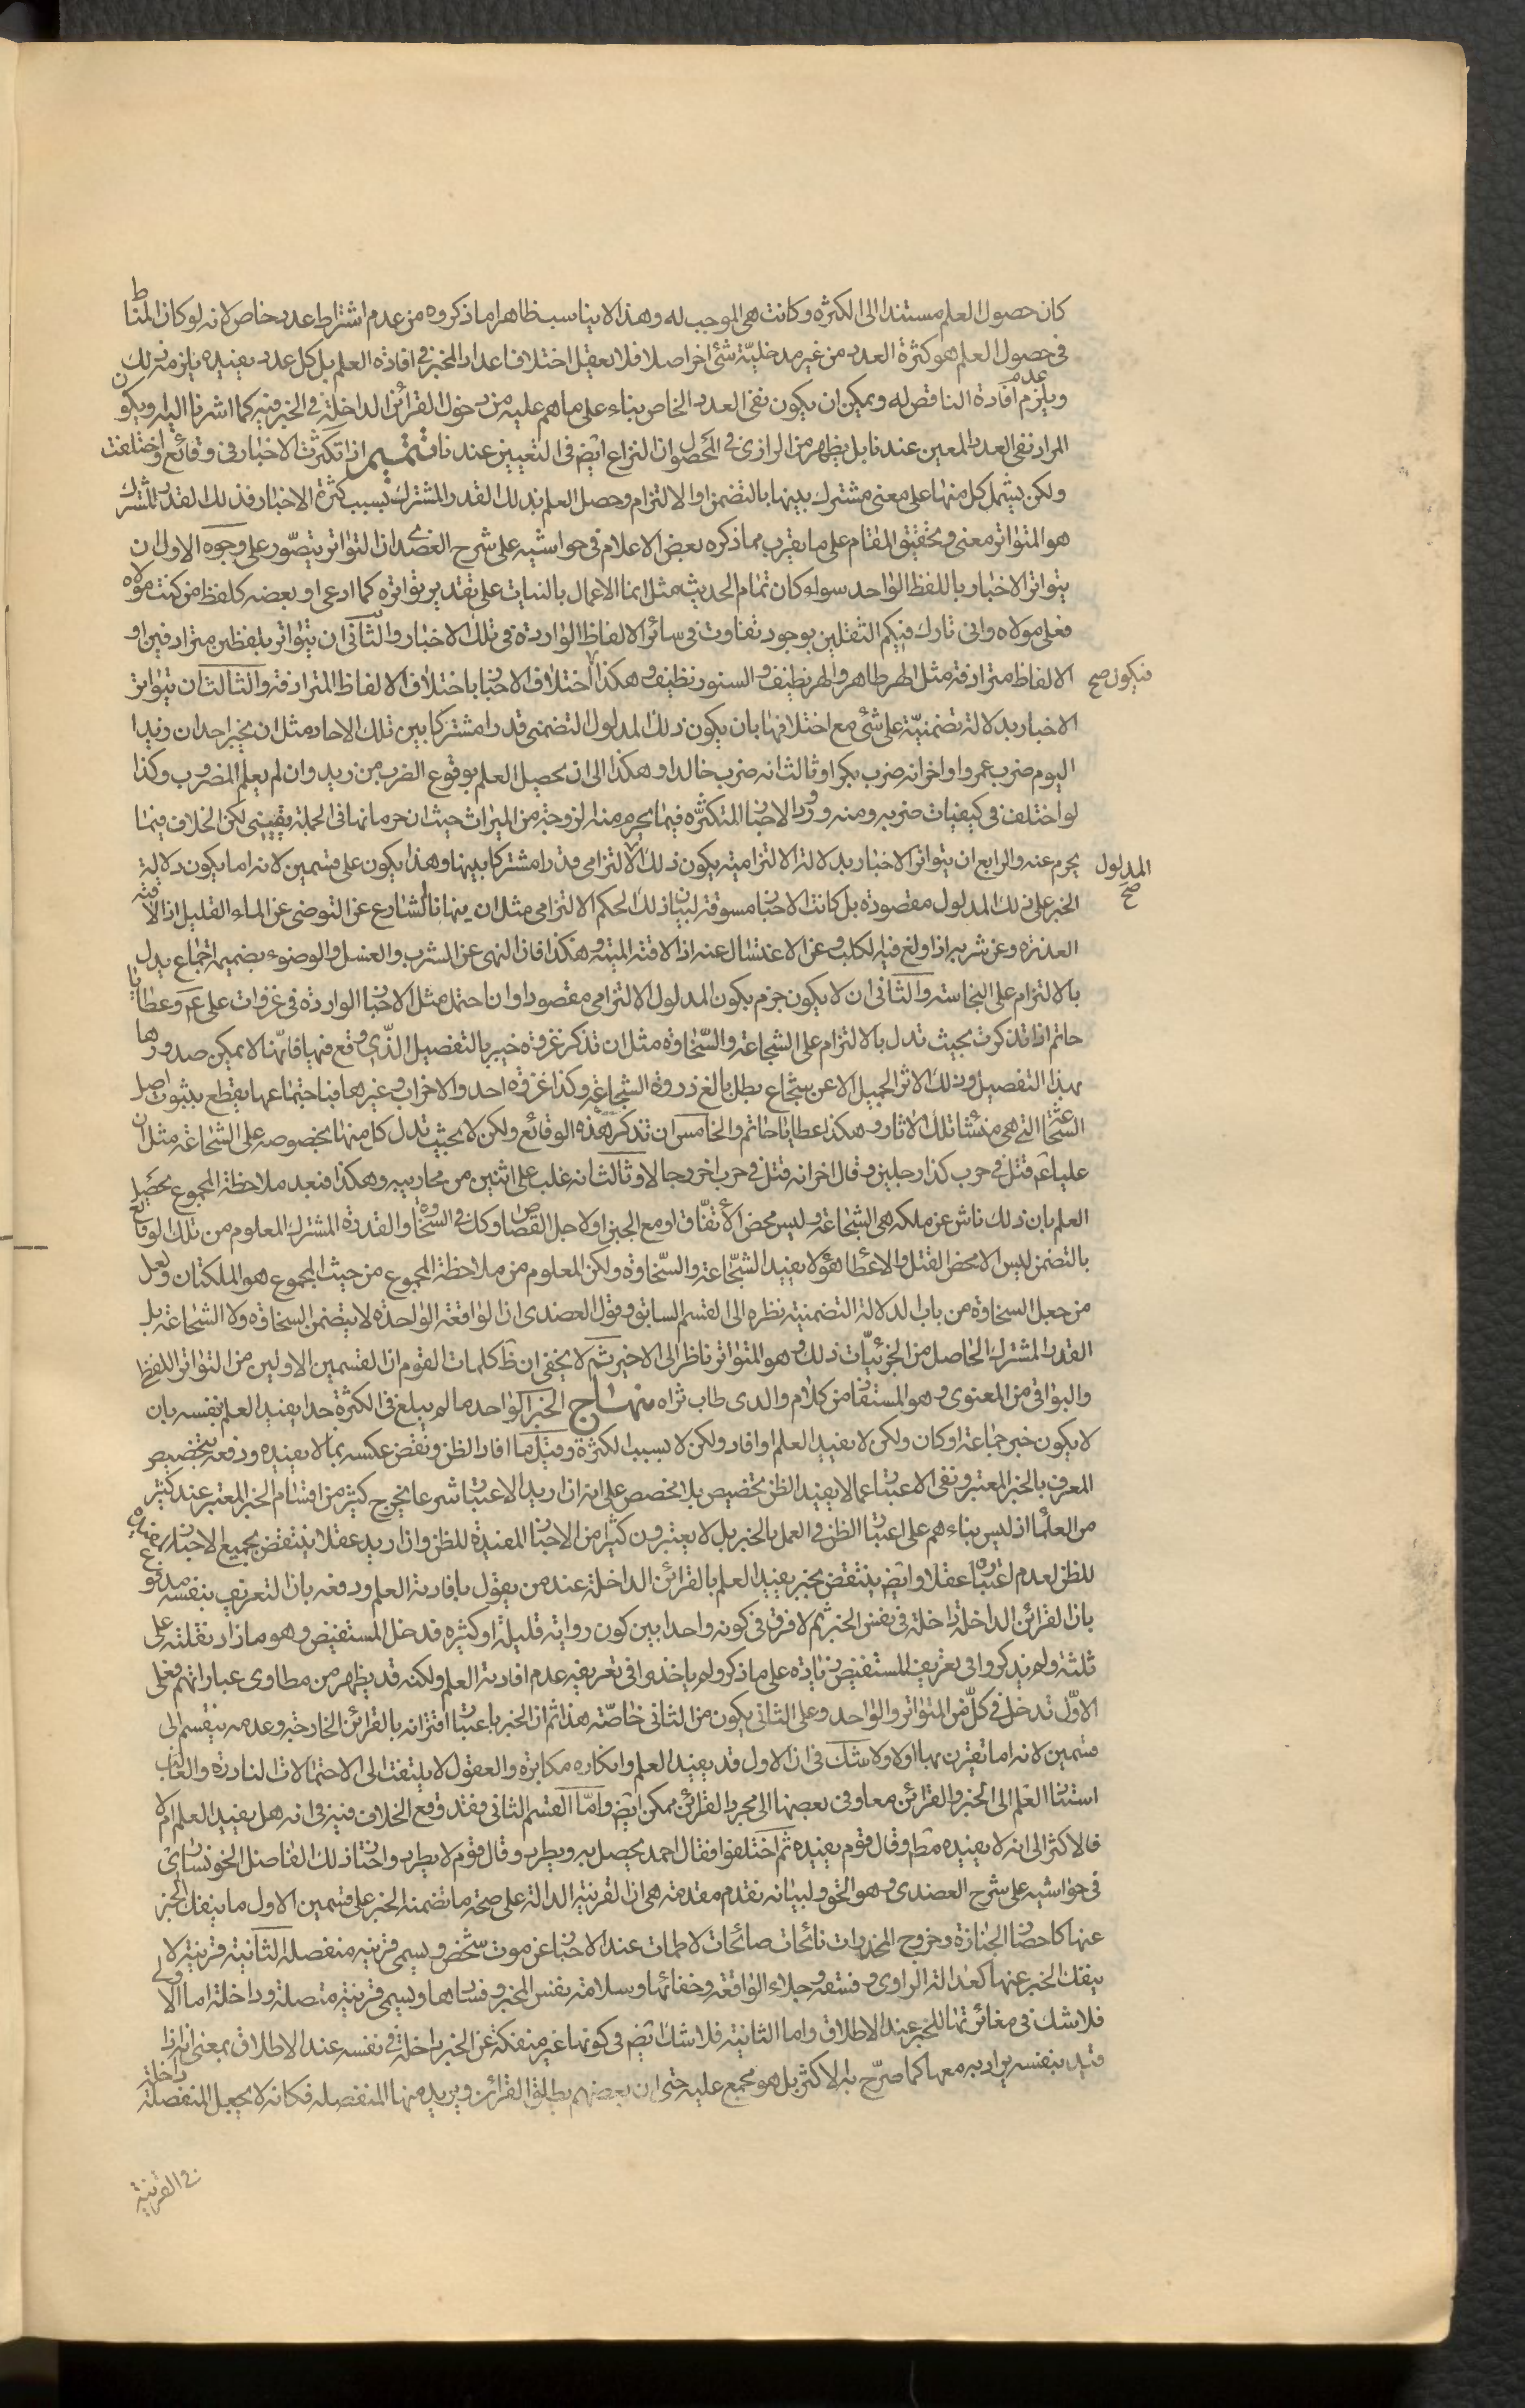 كان حصول العلم مستندا الى الكثره وكانت هى الموجب له وهذا لا يناسب ظاهرا ما ذكروه من عدم اشتراط عدد خاص لانه لو كان المناط
فى حصول العلم هو كثرة العدد من غير مدخليّة شئ اخر اصلا فلا يعقل اختلاف اعداد المخبر فى افادة العلم بل كل عدد يفيده يلزمه ذلك
ويلزم عدم افادة الناقص له ويمكن ان يكون نفى العدد الخاص بناء على ما هم عليه من دخول القرائن الداخلة فى الخبر فيه كما اشرنا اليه ويكون
المراد نفى العدد المعين عندنا بل يظهر من الرازى فى المحصول ان النزاع ايضم فى التعيين عندنا تتميم اذا تكثرت الاخبار فى وقائع واختلفت
ولكن يشتمل كل منها على معنى مشترك بينها بالتضمن او الالتزام وحصل العلم بذلك القدر المشترك بسبب كثرة الاخبار فذلك القدر المشترك
هو المتواتر معنى وتحقيق المقام على ما يقرب مما ذكره بعض الاعلام فى حواشيه على شرح العضدى ان التواتر يتصّور على وجوه الاول ان
يتواتر الاخبار باللفظ الواحد سواء كان تمام الحديث مثل انما الاعمال بالنيات على تقدير تواتره كما ادعى او بعضه كلفظ من كنت مولاه
فعلى مولاه وانى تارك فيكم الثقلين بوجود تفاوت فى سائر الالفاظ الواردة فى تلك الاخبار والثانى ان يتواتر بلفظين مترادفين او
الالفاظ مترادفة مثل الهر طاهر والهر نظيف والسنور نظيف وهكذا اختلاف الاخبار باختلاف الالفاظ المترادفة والثالث ان يتواتر
فيكون صح
الاخبار بدلالة تضمنيّة على شئ مع اختلافها بان يكون ذلك المدلول التضمنى قدرا مشتركا بين تلك الاحاد مثل ان يخبر احد ان زيدا
اليوم ضرب عمروا واخر انه ضرب بكرا وثالث انه ضرب خالدا وهكذا الى ان يحصل العلم بوقوع الضرب من زيد وان لم يعلم المضروب وكذا
لو اختلف فى كيفيات ضربه ومنه ورود الاخبار المتكثّره فيما يحرم منه الزوجة من الميراث حيث ان حرمانها فى الجملة يقينى لكن الخلاف فيما
يحرم عنه والرابع ان يتواتر الاخبار بدلالة الالتزامية يكون ذلك الالتزامى قدرا مشتركا بينها وهذا يكون على قسمين لانه اما يكون دلالة
المدلول صح
الخبر على ذلك المدلول مقصوده بل كانت الاخبار مسوقة لبيان ذلك الحكم الالتزامى مثل ان ينهانا الشارع عن التوضى عن الماء القليل اذا لاقته
العذره وعن شربه اذا ولغ فيه الكلب وعن الاغتسال عنه اذا لاقته الميته وهكذا فان النهى عن الشرب والغسل والوضوء بضميمة اجماع يدل
بالالتزام على النجاسته والثانى ان لا يكون جزم بكون المدلول الالتزامى مقصودا وان احتمل مثل الاخبار الواردة فى غزوات على عم وعطايا
حاتم اذا تذكرت بحيث تدل بالالتزام على الشجاعة والسّخاوة مثل ان تذكر غزوة خيبر بالتفصيل الذّى وقع فيها فانّها لا يمكن صدورها
بهذا التفصيل وذلك الاثر الجميل الا عن شجاع بطل بالغ ذروة الشجاعة وكذا غزوه احد والاحزاب وغيرها فباجتماعها يقطع بثبوت اصل
الشجاعة التى هى منشئا تلك الاثار وهكذا عطايا حاتم والخامس ان تذكر هذه الوقائع ولكن لا بحيث تدل كل منها بخصوصه على الشجاعة مثل ان
عليا عم قتل فى حرب كذا رجلين وقال اخر انه قتل فى حرب اخر رجلا وثالث انه غلب على اثنين من محاربيه وهكذا فبعد ملاحظة المجموع يحصل
العلم بان ذلك ناش عن ملكه هى الشجاعة وليس محض الاتفّاق او مع الجبن او لاجل القصاص وكك فى السخاوة والقدرة المشترك المعلوم من تلك الوقايع
بالتضمن ليس الا محض القتل والاعطا وهو لا يفيد الشجّاعة والسّخاوة ولكن المعلوم من ملاحظة المجموع من حيث المجموع هو الملكتان ولعل
من جعل السخاوة من باب الدلالة التضمنية نظره الى القسم السابق وقول العضدى ان الواقعة الواحدة لا يتضمن السخاوة ولا الشجاعة بل
القدر المشترك الحاصل من الجزئيّات ذلك وهو المتواتر ناظر الى الاخير ثم لا يخفى ان ظ كلمات القوم ان القسمين الاولين من التواتر اللفظى
والبواقى من المعنوى وهو المستفاد من كلام والدى طاب ثراه منهاج الخبر الواحد ما لم يبلغ فى الكثرة حدا يفيد العلم بنفسه بان
لا يكون خبر جماعة او كان ولكن لا يفيد العلم او افاد ولكن لا بسبب الكثرة وقيل ما افاد الظن ونقض عكسه بما لا يفيده ودفعه بتخصيص
المعرف بالخبر المعتبر ونفى الاعتبار عما لا يفيد الظن تخصيص بلا مخصص على انه ان اريد الاعتبار شرعا يخرج كثير من اقسام الخبر المعتبر عند كثير
من العلما اذ ليس بناءهم على اعتبار الظن فى العمل بالخبر بل لا يعتبرون كثيرا من الاخبار المفيدة للظن وان اريد عقلا ينتقض بجميع الاخبار المفيدة
للظن لعدم اعتبارها عقلا وايضم ينتقض بخبر يفيد العلم بالقرائن الداخلة عند من يقول بافادته العلم ودفعه بان التعريف بنفسه مدفوع
بان القرائن الداخلة داخلة فى نفس الخبر ثم لا فرق فى كونه واحدا بين كون رواته قليلة او كثيره فدخل المستفيض وهو ما زاد نقلته على
ثلثة ولم يذكروا فى تعريف المستفيض زيادة على ما ذكر ولم ياخذوا فى تعريفه عدم افادته العلم ولكنه قد يظهر من مطاوى عباراتهم فعلى
الاوّل تدخل فى كلّ من المتواتر والواحد وعلى الثانى يكون من الثانى خاصّة هذا ثم ان الخبر باعتبار اقترانه بالقرائن الخارجة وعدمه ينقسم الى
قسمين لانه اما تقترن بها او لا ولا شك فى ان الاول قد يفيد العلم وانكاره مكابرة والعقول لا يلتفت الى الاحتمالات النادرة والغالب
استناد العلم الى الخبر والقرائن معا وفى بعضها الى مجرد القرائن ممكن ايضم وامّا القسم الثانى فقد وقع الخلاف فيه فى انه هل يفيد العلم ام لا
فالاكثر الى انه لا يفيده مطم وقال قوم يفيده ثم اختلفوا فقال احمد يحصل به ويطرد وقال قوم لا يطرد واختار ذلك الفاضل الخونسارى
فى حواشيه على شرح العضدى وهو الحق ولبيانه نقدم مقدمة هى ان القرينة الدالة على صحة ما تضمنه الخبر على قسمين الاول ما ينفك الخبر
عنها كاحضار الجنازة وخروج المخدرات نائحات صائحات لاطمات عند الاخبار عن موت شخص ويسمى قرينه منفصلة الثانية قرينة لا
ينفك الخبر عنها كعدالة الراوى وفسقه وجلاء الواقعة وخفائها وسلامة نفس المخبر وفسادها ويسمى قرينة متصلة وداخلة اما الاولى
فلا شك فى مغائرتها للخبر عند الاطلاق واما الثانية فلا شك ايضم فى كونها غير منفكة عن الخبر داخلة فى نفسه عند الاطلاق بمعنى انه اذا
قيد بنفسه يراد به معها كما صرّح به الاكثر بل هو مجمع عليه حتى ان بعضهم يطلق القرائن ويريد منها المنفصله فكانه لا يجعل المنفصلة داخلة
فى القرينة